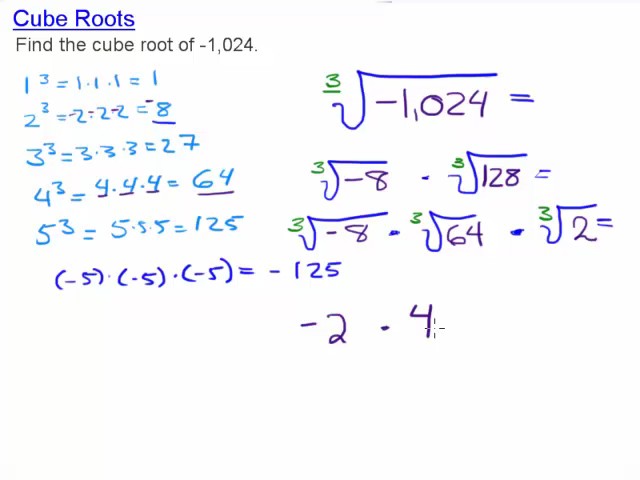 Cube Roots
Find the cube root of -1,024.
1³ = 1·1·1 = 1
2³ = -2·-2·-2 = -8
3³ = 3·3·3 = 27
4³ = 4·4·4 = 64
5³ = 5·5·5 = 125
(-5)·(-5)·(-5) = -125
∛-1,024 =
∛-8 · ∛128 =
∛-8 · ∛64 · ∛2 =
-2 · 4